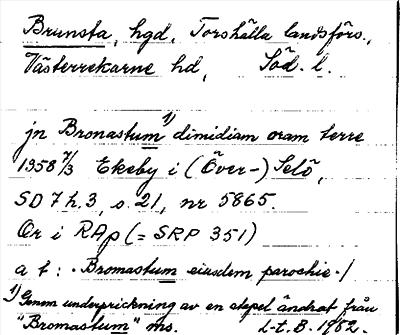 Brunsta, hgd, Torshälla landsförs.,
Västerrekarne hd, Söd. l.
jn Bronastum 1) dimidiam oram terre
1358 7/3 Ekeby i (Över-) Selö,
SD 7 h. 3, s. 21, nr 5865.
Or i RAp (= SRP 351)
a t : Bromastum eiusdem parochie /
1) Genom underprickning av en stapel ändrat från
"Bromastum" ms. L-t. B. 1982.